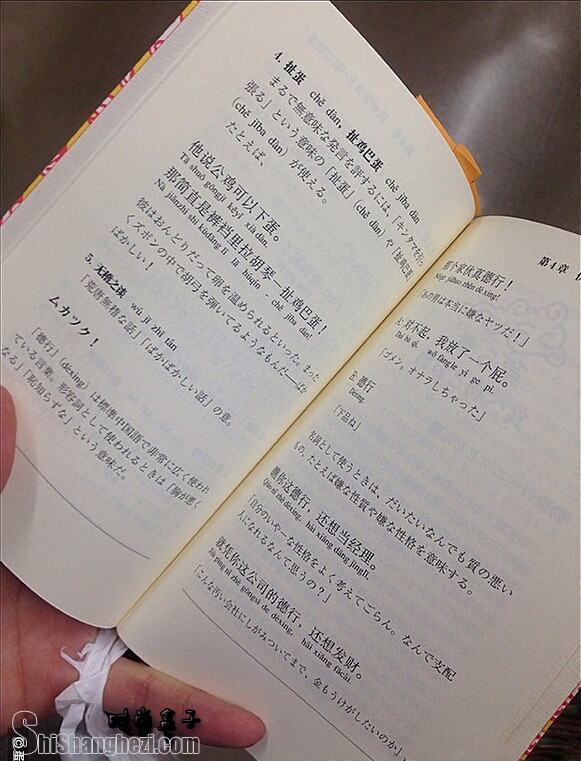 4. 扯蛋 chě dàn, 扯鸡巴蛋 chě jība dàn
まるで無意味な発言を評するには、「キンタマを引っ
張る」という意味の「扯蛋」(chě dàn) や「扯鸡巴蛋
(chě jība dàn) が使える。
たとえば、
他说公鸡可以下蛋。
Tā shuō gōngjī kěyǐ xià dàn.
那简直是裤裆里拉胡琴—扯鸡巴蛋！
Nà jiǎnzhí shì kùdāng lǐ lā húqín — chě jība dàn!
彼はおんどりだって卵を温められるといった。まった
くズボンの中で胡弓を弾いてるようなもんだ—ばか
ばかしい！
5. 无稽之谈 wú jī zhī tán
「荒唐無稽な話」「ばかばかしい話」の意。
ムカック！
「德行」(déxing) は標準中国語で非常に広く使われ
ている言葉。形容詞として使われるときは「胸が悪く
なる」「恥知らずな」という意味だ。
第4章
那个家伙真德行！
Nèige jiāhuo zhēn déxing!
「あの男は本当に嫌なヤツだ！」
A: 对不起，我放了一个屁。
Duì bù qǐ, wǒ fàngle yí ge pì.
「ゴメン。オナラしちゃった」
B: 德行
Déxing.
「下品ね」
名詞として使うときは、だいたいなんでも質の悪い
もの、たとえば嫌な性質や嫌な性格を意味する。
瞧你这德行，还想当经理。
Qiáo nǐ zhè déxing, hái xiǎng dāng jīnglǐ.
「自分のいやーな性格をよく考えてごらん。なんで支配
人になれるなんて思うの？」
就凭你这公司的德行，还想发财。
Jiù píng nǐ zhè gōngsī de déxing, hái xiǎng fācái.
「こんな汚い会社にしがみついてまで、金もうけがしたいのか」
时尚盒子
ShiShanghezi.com